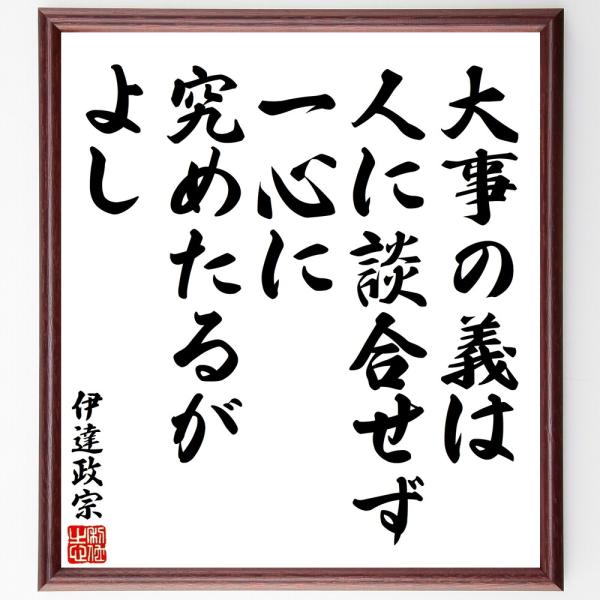 大事の義は
人に談合せず
一心に
究めたるが
よし
伊達政宗